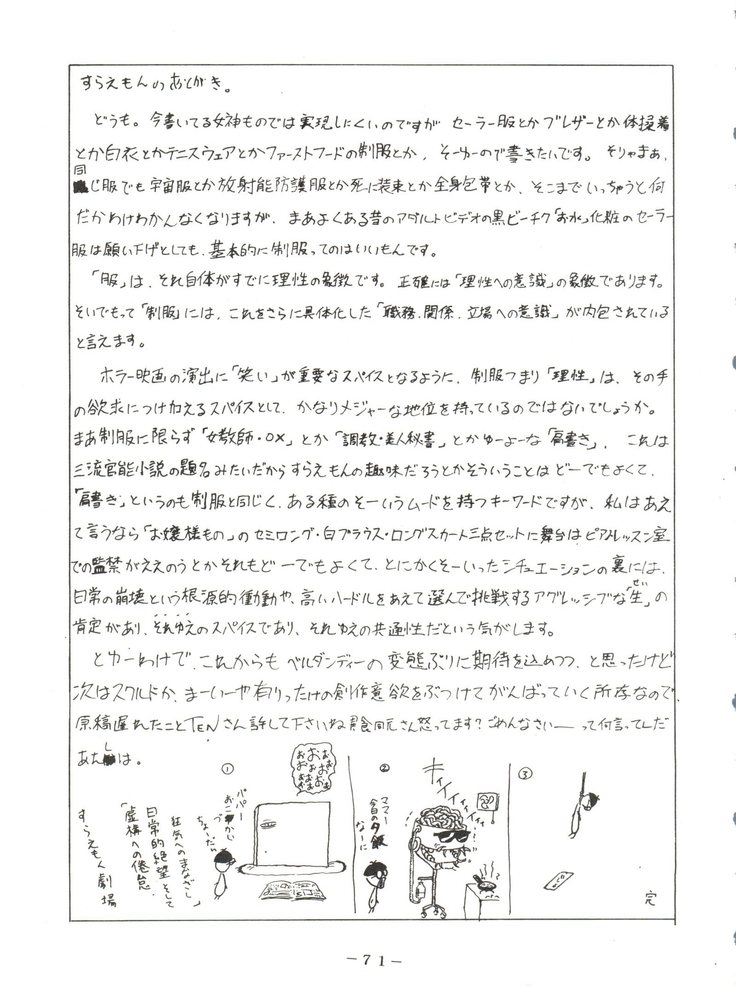 すらえもんのあとがき。
どうも。今書いてる女神ものでは実現しにくいのですが セーラー服とかブレザーとか体操着
とか白衣とかテニスウェアとかファーストフードの制服とか、そーゆーので書きたいです。そりゃまぁ、
同じ服でも宇宙服とか放射能防護服とか死に装束とか全身包帯とか、そこまでいっちゃうと何
だかわけわかんなくなりますが、まあよくある昔のアダルトビデオの黒ビーチク「お水」化粧のセーラー
服は願い下げとしても、基本的に制服ってのはいいもんです。
「服」は、それ自体がすでに理性の象徴です。正確には「理性への意識」の象徴であります。
そいでもって「制服」には、これをさらに具体化した「職務、関係、立場への意識」が内包されている
と言えます。
ホラー映画の演出に「笑い」が重要なスパイスとなるように、制服つまり「理性」は、その手
の欲求につけ加えるスパイスとして、かなりメジャーな地位を持っているのではないでしょうか。
まあ制服に限らず「女教師・○×」とか「調教・美人秘書」とかゆーよーな「肩書き」、これは
三流官能小説の題名みたいだからすらえもんの趣味だろうとかそういうことはどーでもよくて、
「肩書き」というのも制服と同じく、ある種のそーいうムードを持つキーワードですが、私はあえ
て言うなら「お嬢様もの」のセミロング・白ブラウス・ロングスカート三点セットに舞台はピアノレッスン室
での監禁がええのうとかそれもどーでもよくて、とにかくそーいったシチュエーションの裏には、
日常の崩壊という根源的衝動や、高いハードルをあえて選んで挑戦するアグレッシブな「生」の
ぜい
肯定があり、それゆえのスパイスであり、それゆえの共通性だという気がします。
とゆーわけで、これからもベルダンディーの変態ぶりに期待を込めつつ、と思ったけど
次はスクルドか、まーいーや有りったけの創作意欲をぶつけてがんばっていく所存なので、
原稿遅れたことTENさん許して下さいね 怒ってます?ごめんなさいーって何言ってんだ
あたしは。
すらえもん劇場
「虚構への倦怠
日常的絶望、そして
狂気へのまなざし」
①
パパー
おこづかい
ちょーだい
おおおおおおおお
②
ママー
今日の夕飯
なーに
ギイイイイイ
③
完
-71-